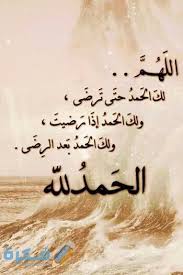 اللَّهُمَّ . .
لكَ الحَمدُ حتَّى تَرضَى ،
ولكَ الحَمدُ إذَا رَضيتَ ،
ولكَ الحَمدُ بَعد الرِضَى .
الحَمدُ للّه
فكرة